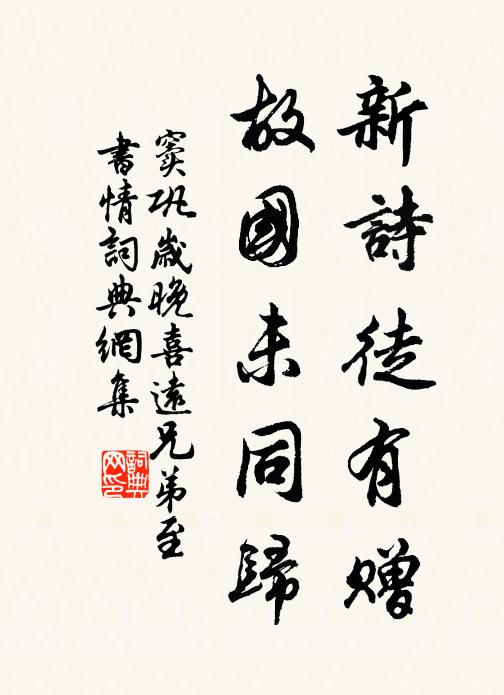 新詩徒有贈
故國未同歸
竇巩歲晚喜遠兄弟至
書情詞典網集
詞典网印